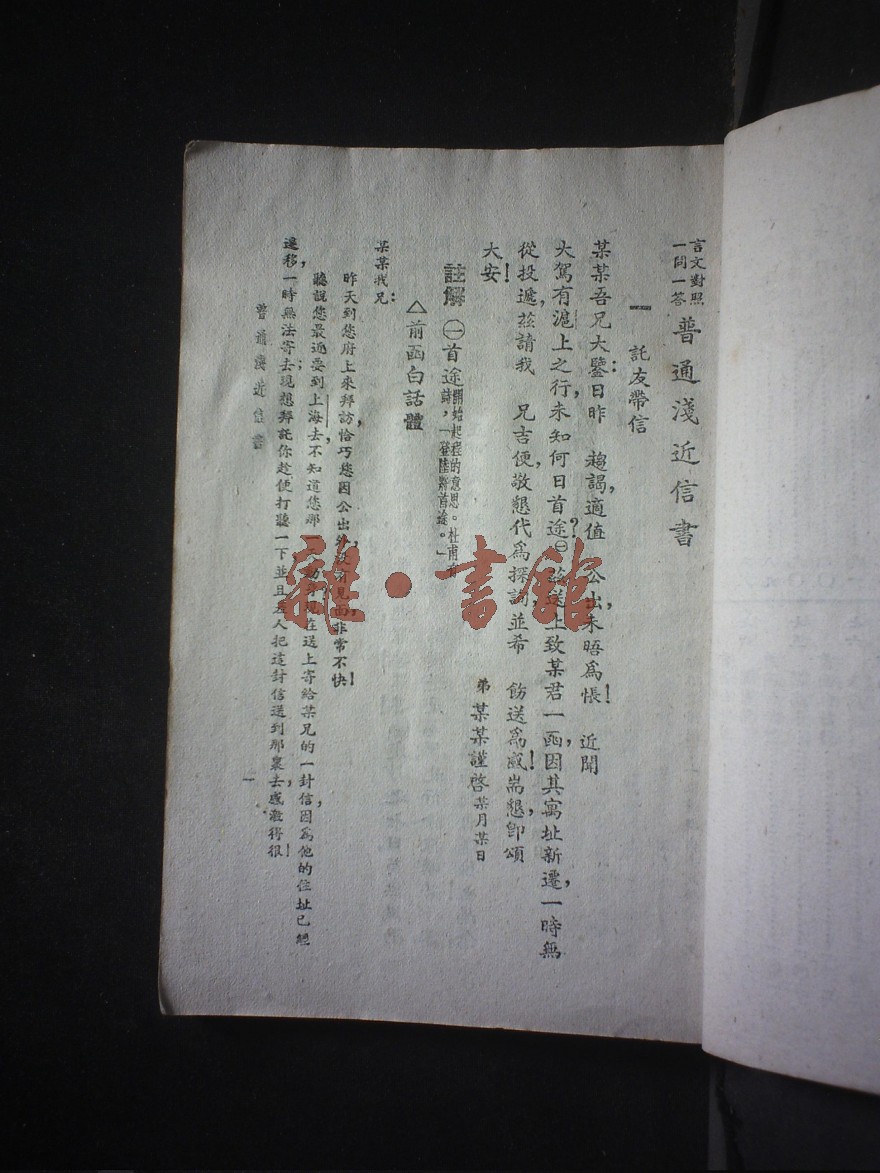 言文對照
一問一答
普通淺近信書
一 託友帶信
某某吾兄大鑒：日昨 趨謁，適值 公出，未晤爲悵！ 近聞
大駕有滬上之行，未知何日首途㊀？茲送上致某君一函，因其寓址新遷，一時無
從投遞，茲請我 兄吉便，敬懇代爲探詢，並希 飭送爲感！耑懇，卽頌
大安！
弟 某某謹啓 某月某日
註解 ㊀首途 開始起程的意思。杜甫有詩，「登陸將首途。」
△前函白話體
某某我兄：
昨天到您府上來拜訪，恰巧您因公出外，沒有見面，非常不快！
聽說您最近要到上海去，不知道您那一 動身？現在送上寄給某兄的一封信，因爲他的住址已經
遷移，一時無法寄去；現想拜託你趁便打聽一下，並且差人把這封信送到那裏去，感激得很！
普通淺近信書
一
雜·書館